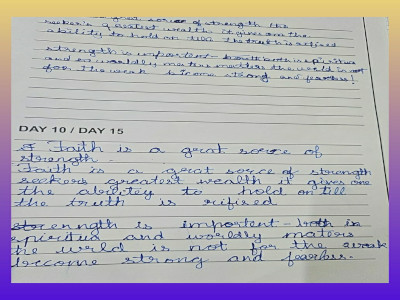 seeker's greatest wealth. It gives one the
ability to hold on till the truth is rifired
strength is important - both in spiritual
and in worldly matters the world is not
for the weak become strong and fearless!
DAY 10 / DAY 15
Faith is a grat soree of
strength
Faith is a great sorce of strength
seekers greatest wealth it gives one
the abilitey to hold on till
the truth is rifired
strenngth is importent - both in
epiritua and worldly maters
the world is not for the weak
become strong and fearler.